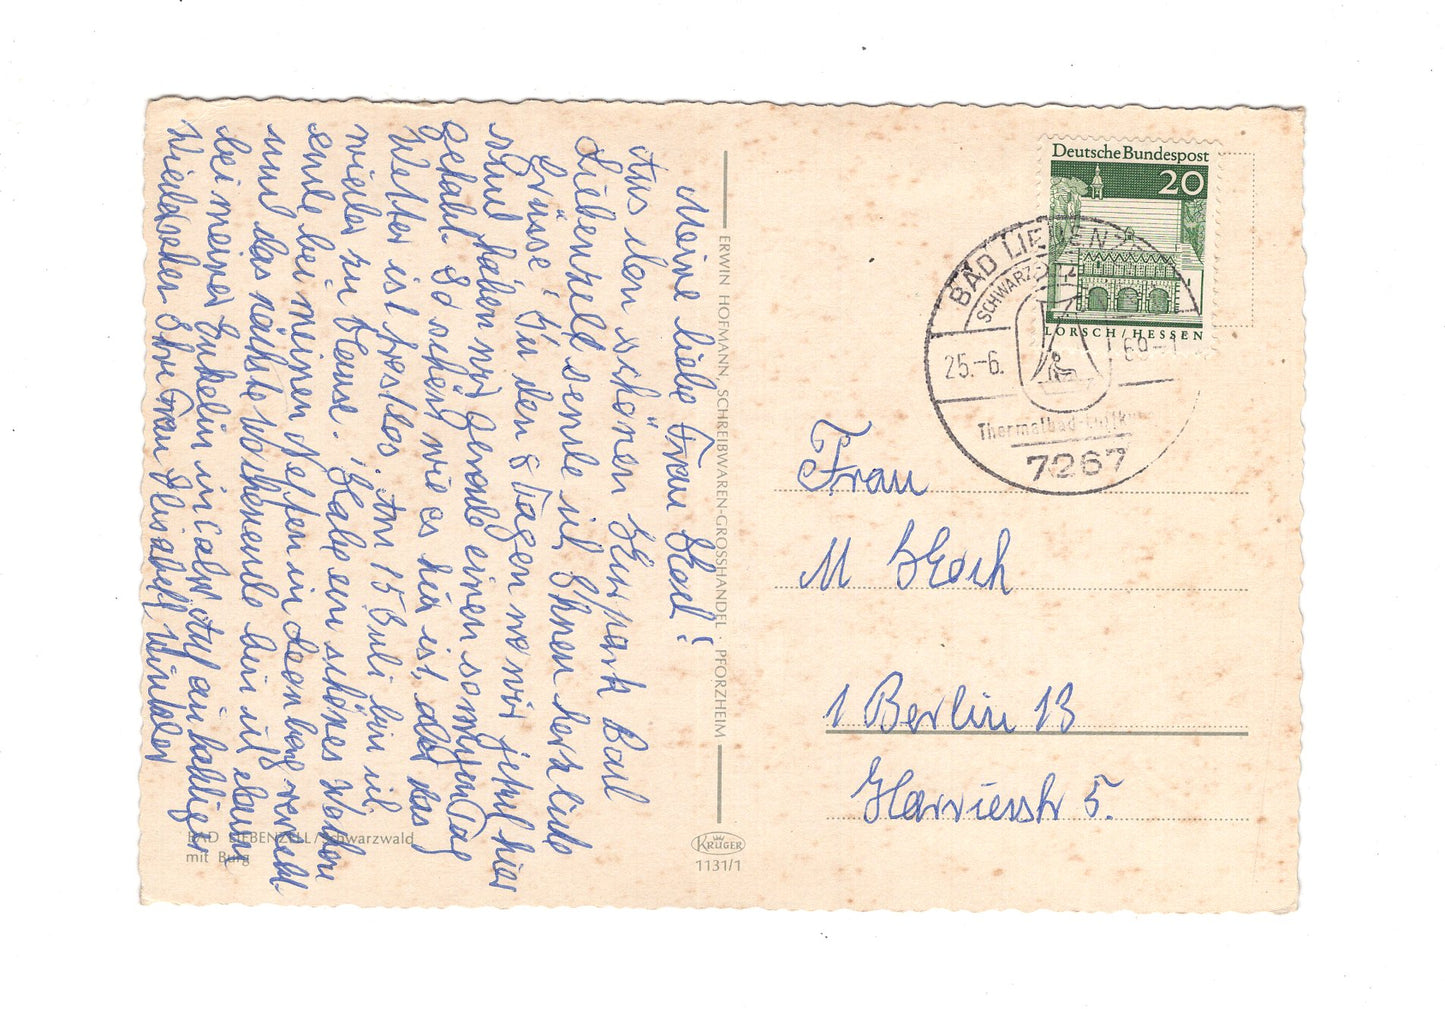 Meine liebe Frau Koch!
Aus den schönen Kurpark Bad
Liebenzell sende ich Ihnen herzliche
Grüsse! In den 8 Tagen wo wir jetzt hier
sind haben wir gerade einen sonnigen Tag
gehabt So schön wie es hier ist, aber das
Wetter ist trostlos. Am 15 Juli bin ich
wieder zu Hause, Habe ein schönes Wochen
ende bei meinen Neffen in Leonberg verlebt
und das nächste Wochenende bin ich dann
bei meiner Enkelin in Calw Auf ein baldiges
Wiedersehen Ihre Frau Elisabeth Winkler
ERWIN HOFMANN, SCHREIBWAREN-GROSSHANDEL · PFORZHEIM
BAD LIEBENZELL/Schwarzwald
mit Burg
KRÜGER
1131/1
Deutsche Bundespost
20
LORSCH/HESSEN
BAD LIEBENZELL
SCHWARZW
25.-6. 69-
Thermalbad-Luftku
7267
Frau
M Koch
1 Berlin 13
Harriesstr 5.